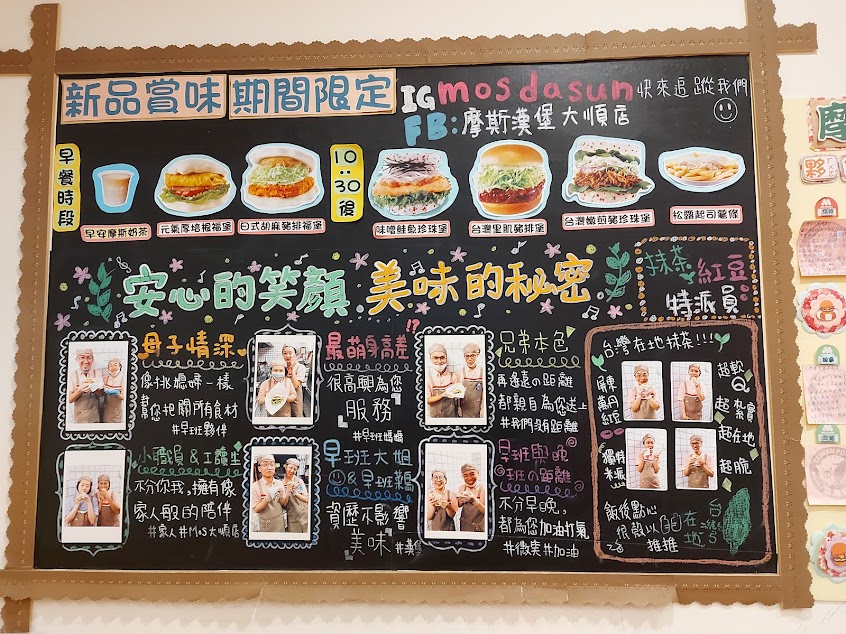 新品賞味 期間限定
IG mosdasun 快來追蹤我們
FB:摩斯漢堡大順店
早餐時段
10:30後
早安摩斯奶茶
元氣厚培根福堡
日式胡麻豬排福堡
味噌鮭魚珍珠堡
台灣里肌豬排堡
台灣嫩煎豬珍珠堡
松露起司薯條
安心的笑顏 美味的秘密
抹茶紅豆
特派員
母子情深
像挑媳婦一樣
幫您把關所有食材
#早班夥伴
最萌身高差!?
很高興為您
「服務」
#早班媽媽
兄弟本色
再遙遠の距離
都親自為您送上
#我們沒有距離
小職員&工讀生
不分你我,擁有像
家人般的陪伴
#家人#Mos大順店
早班大姐
&早班鵝
資歷不影響
「美味」
早班與晚
班の距離
不分早晚,
都為您加油打氣
#微笑#加油
台灣在地抹茶!!!
屏東
萬丹
紅豆
獨特
米派
超軟Q
超紮實
超在地
超脆
飯後點心
很殼以
推推
在地
摩
夥